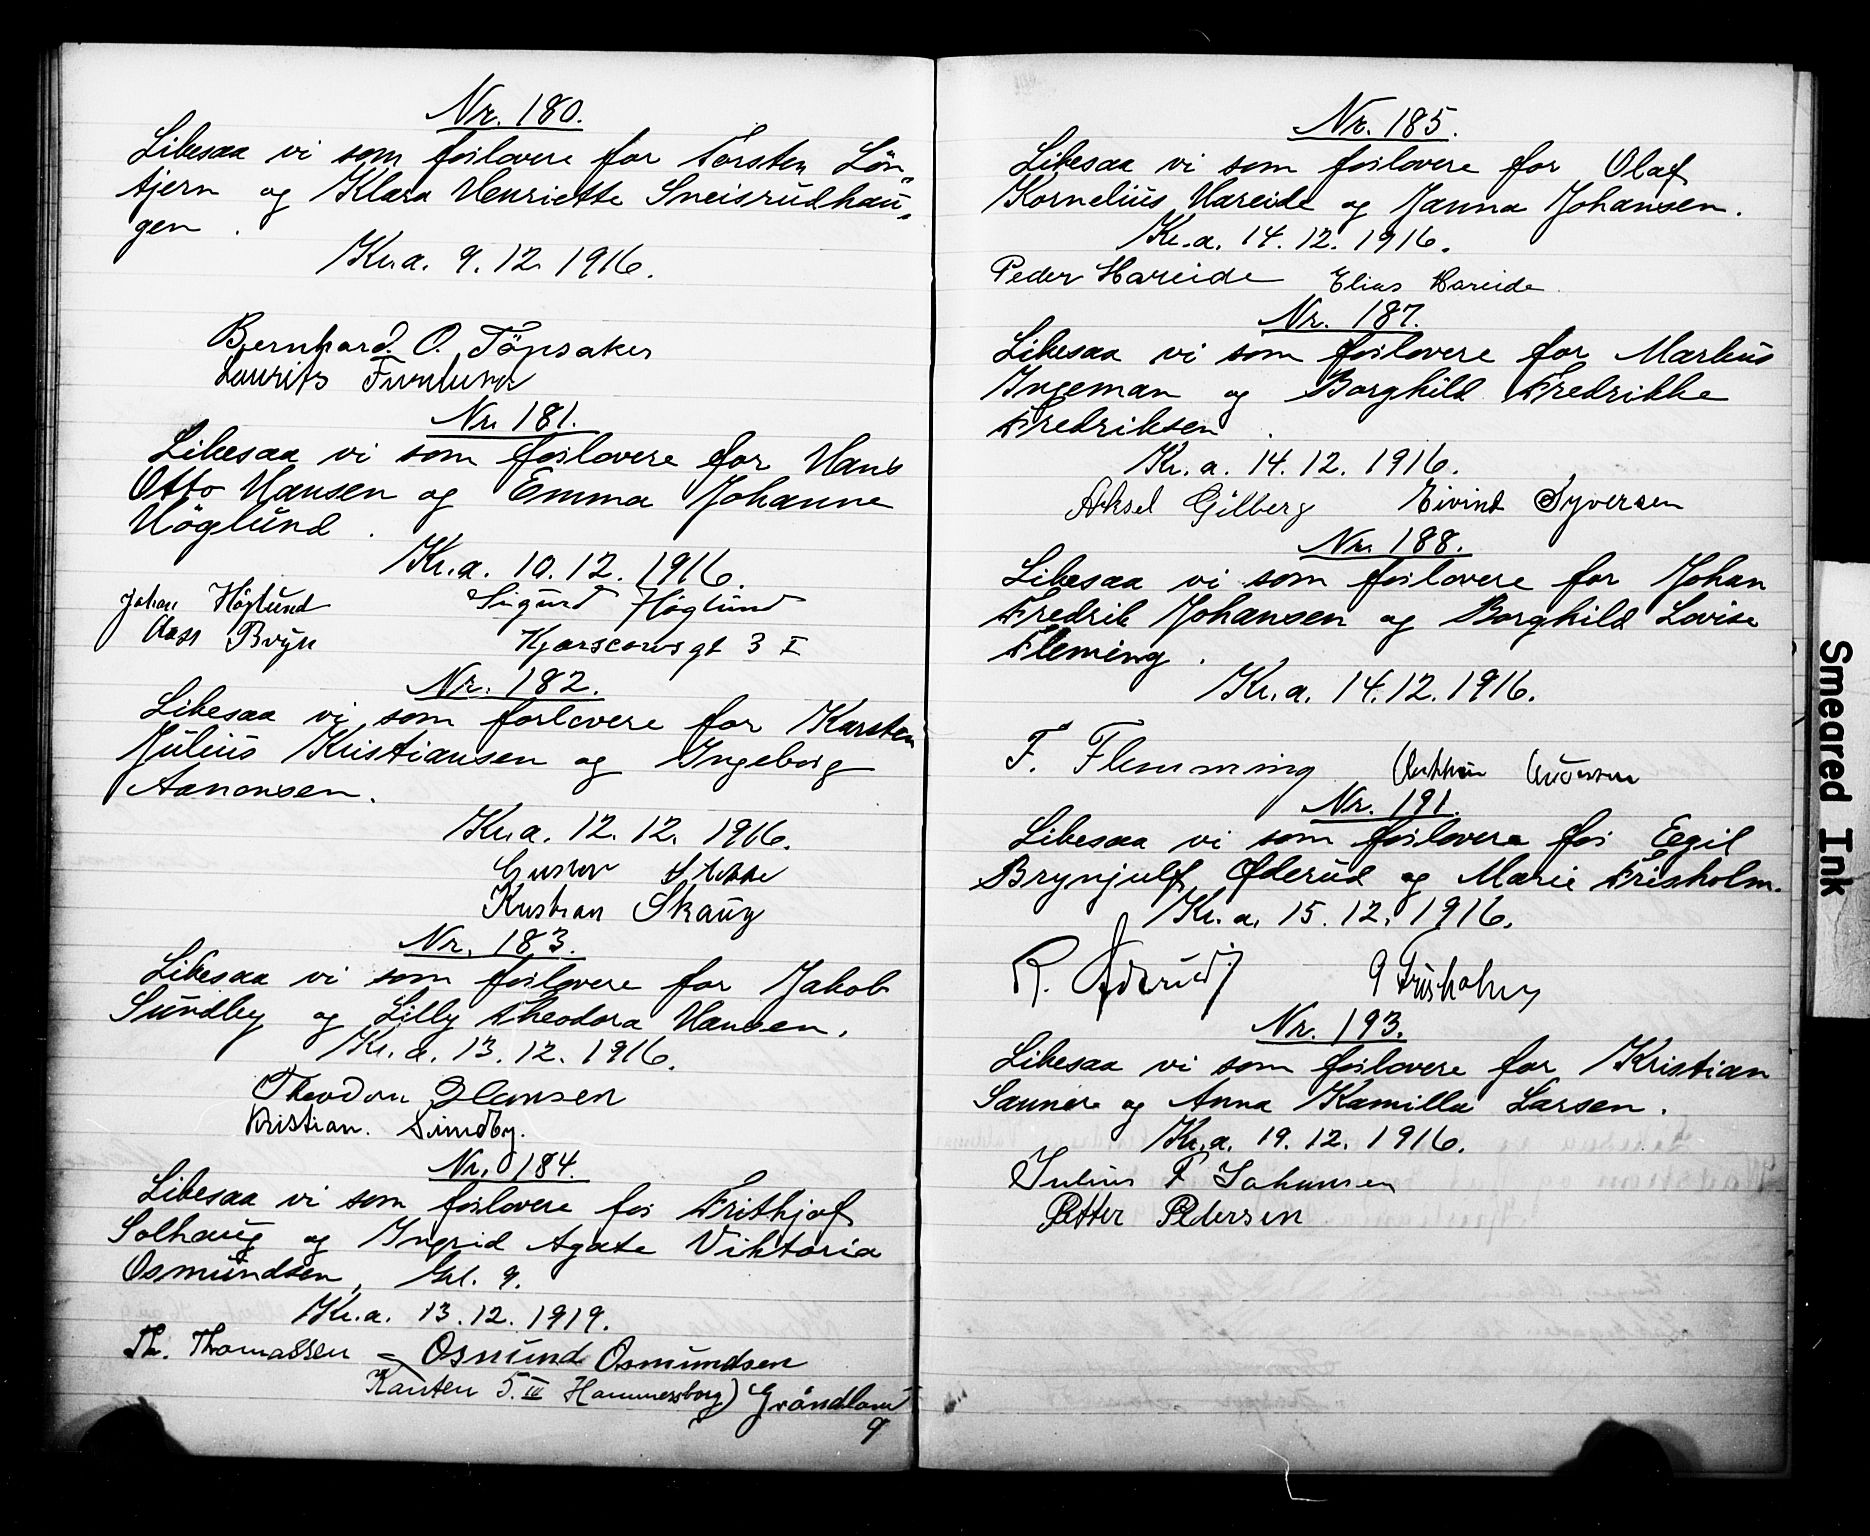 Nr. 180.
Likesaa vi som forlovere for Torsten Lön„
tjern og Klara Henriette Sneisrudhau„
gen.
Kr.a. 9.12. 1916.
Bernhard. O. Tönsaker
Laurits Furulund
Nr. 181.
Likesaa vi som forlovere for Hans
Otto Hansen og Emma Johanne
Höglund.
Kr.a. 10.12. 1916.
Johan Höglund Sigurd Höglund
Aass Bryn Kjærscowsgt 3 I
Nr. 182.
Likesaa vi som forlovere for Karsten
Julius Kristiansen og Ingeborg
Aanonsen.
Kr.a. 12. 12. 1916.
Gustav
Kristian Skaug
Nr. 183.
Likesaa vi som forlovere for Jakob
Sundby og Lilly Theodora Hansen.
Kr.a. 13. 12. 1916.
Theodor Hansen
Kristian. Sundby.
Nr. 184.
Likesaa vi som forlovere for Frithjof
Solhaug og Ingrid Agate Viktoria
Osmundsen, Grl. 9.
Kr.a. 13.12. 1919.
Th. Thomassen = Osmund Osmundsen
Kanten 5. III Hammersborg) Gröndland
9
Nr. 185.
Likesaa vi som forlovere for Olaf
Kornelius Hareide og Janna Johansen.
Kr.a. 14. 12. 1916.
Peder Hareide Elias Hareide
Nr. 187.
Likesaa vi som forlovere for Markus
Ingeman og Borghild Fredrikke
Fredriksen.
Kr.a. 14.12. 1916.
Aksel Gilberg Eivind Syversen
Nr. 188.
Likesaa vi som forlovere for Johan
Fredrik Johansen og Borghild Lovise
Fleming.
Kr.a. 14.12. 1916.
F. Flemming Andersen
Nr. 191.
Likesaa vi som forlovere for Egil
Brynjulf Øderud og Marie Frisholm.
Kr.a. 15. 12. 1916.
R. Øderud Frisholm
Nr. 193.
Likesaa vi som forlovere for Kristian
Sannere og Anna Kamilla Larsen.
Kr.a. 19. 12. 1916.
Julius F Johansen
Petter Pedersen
Smeared Ink